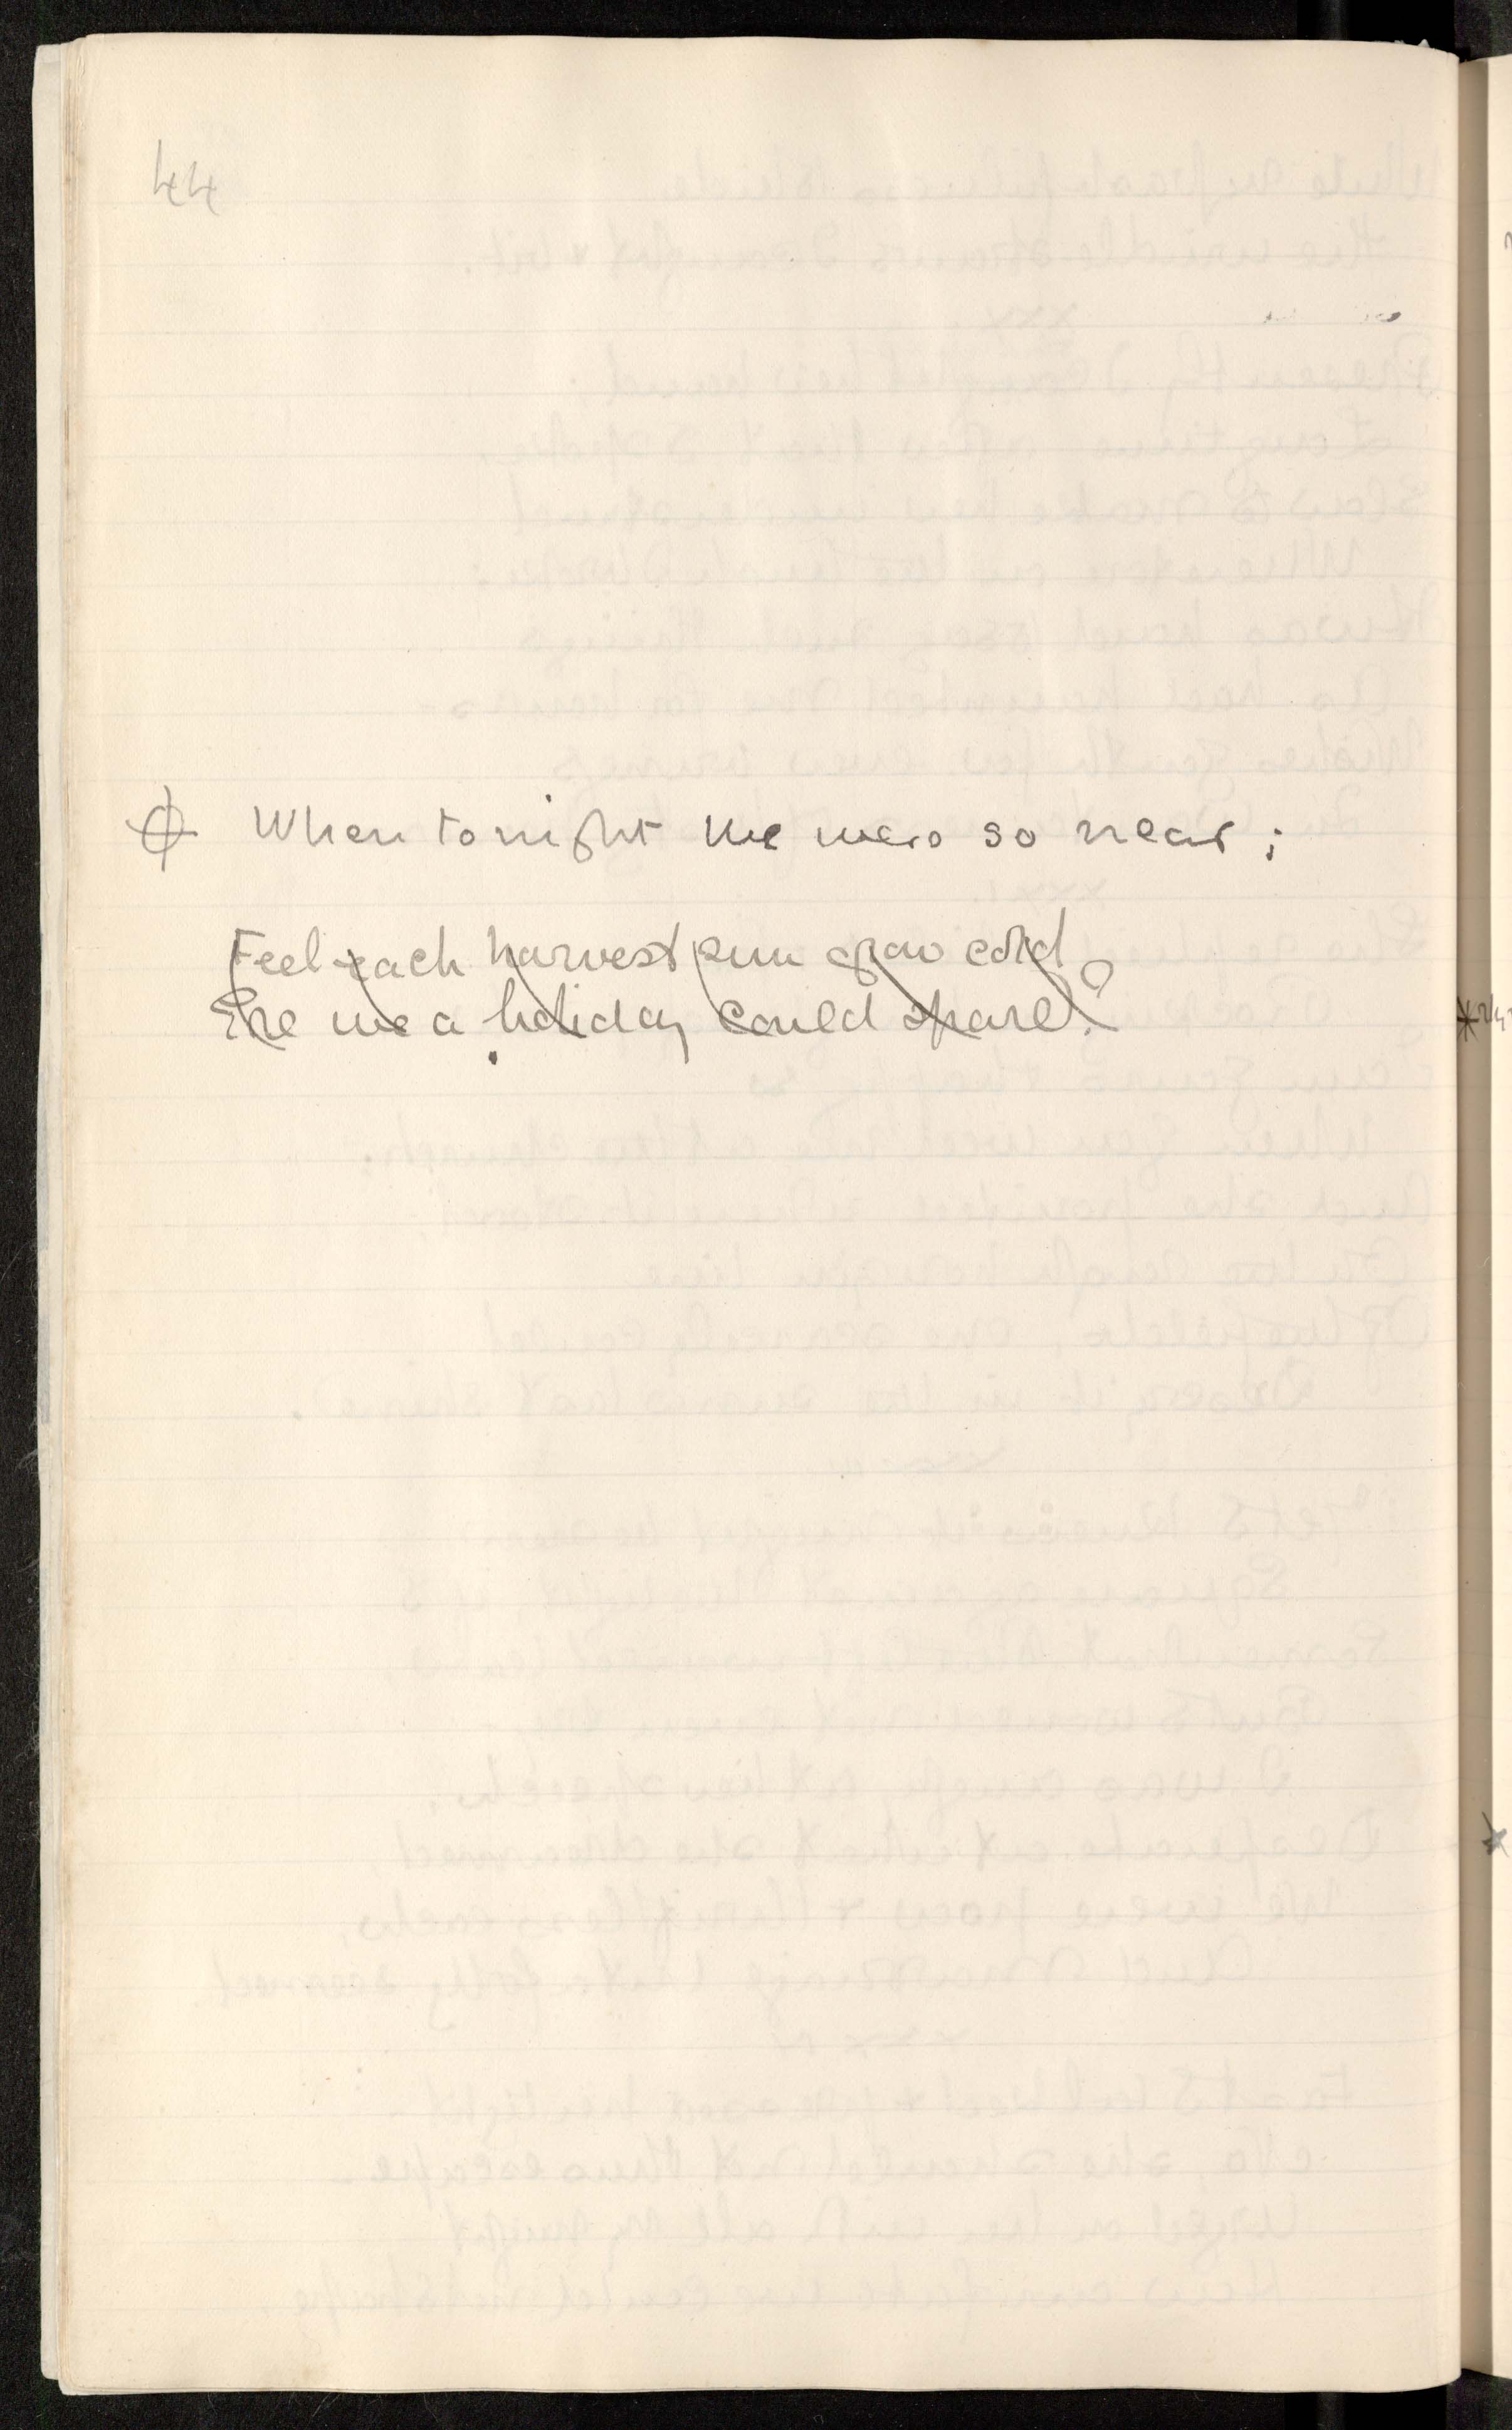 44
When tonight we were so near;
Feel each harvest sun grow cold
Ere we a holiday could spare?